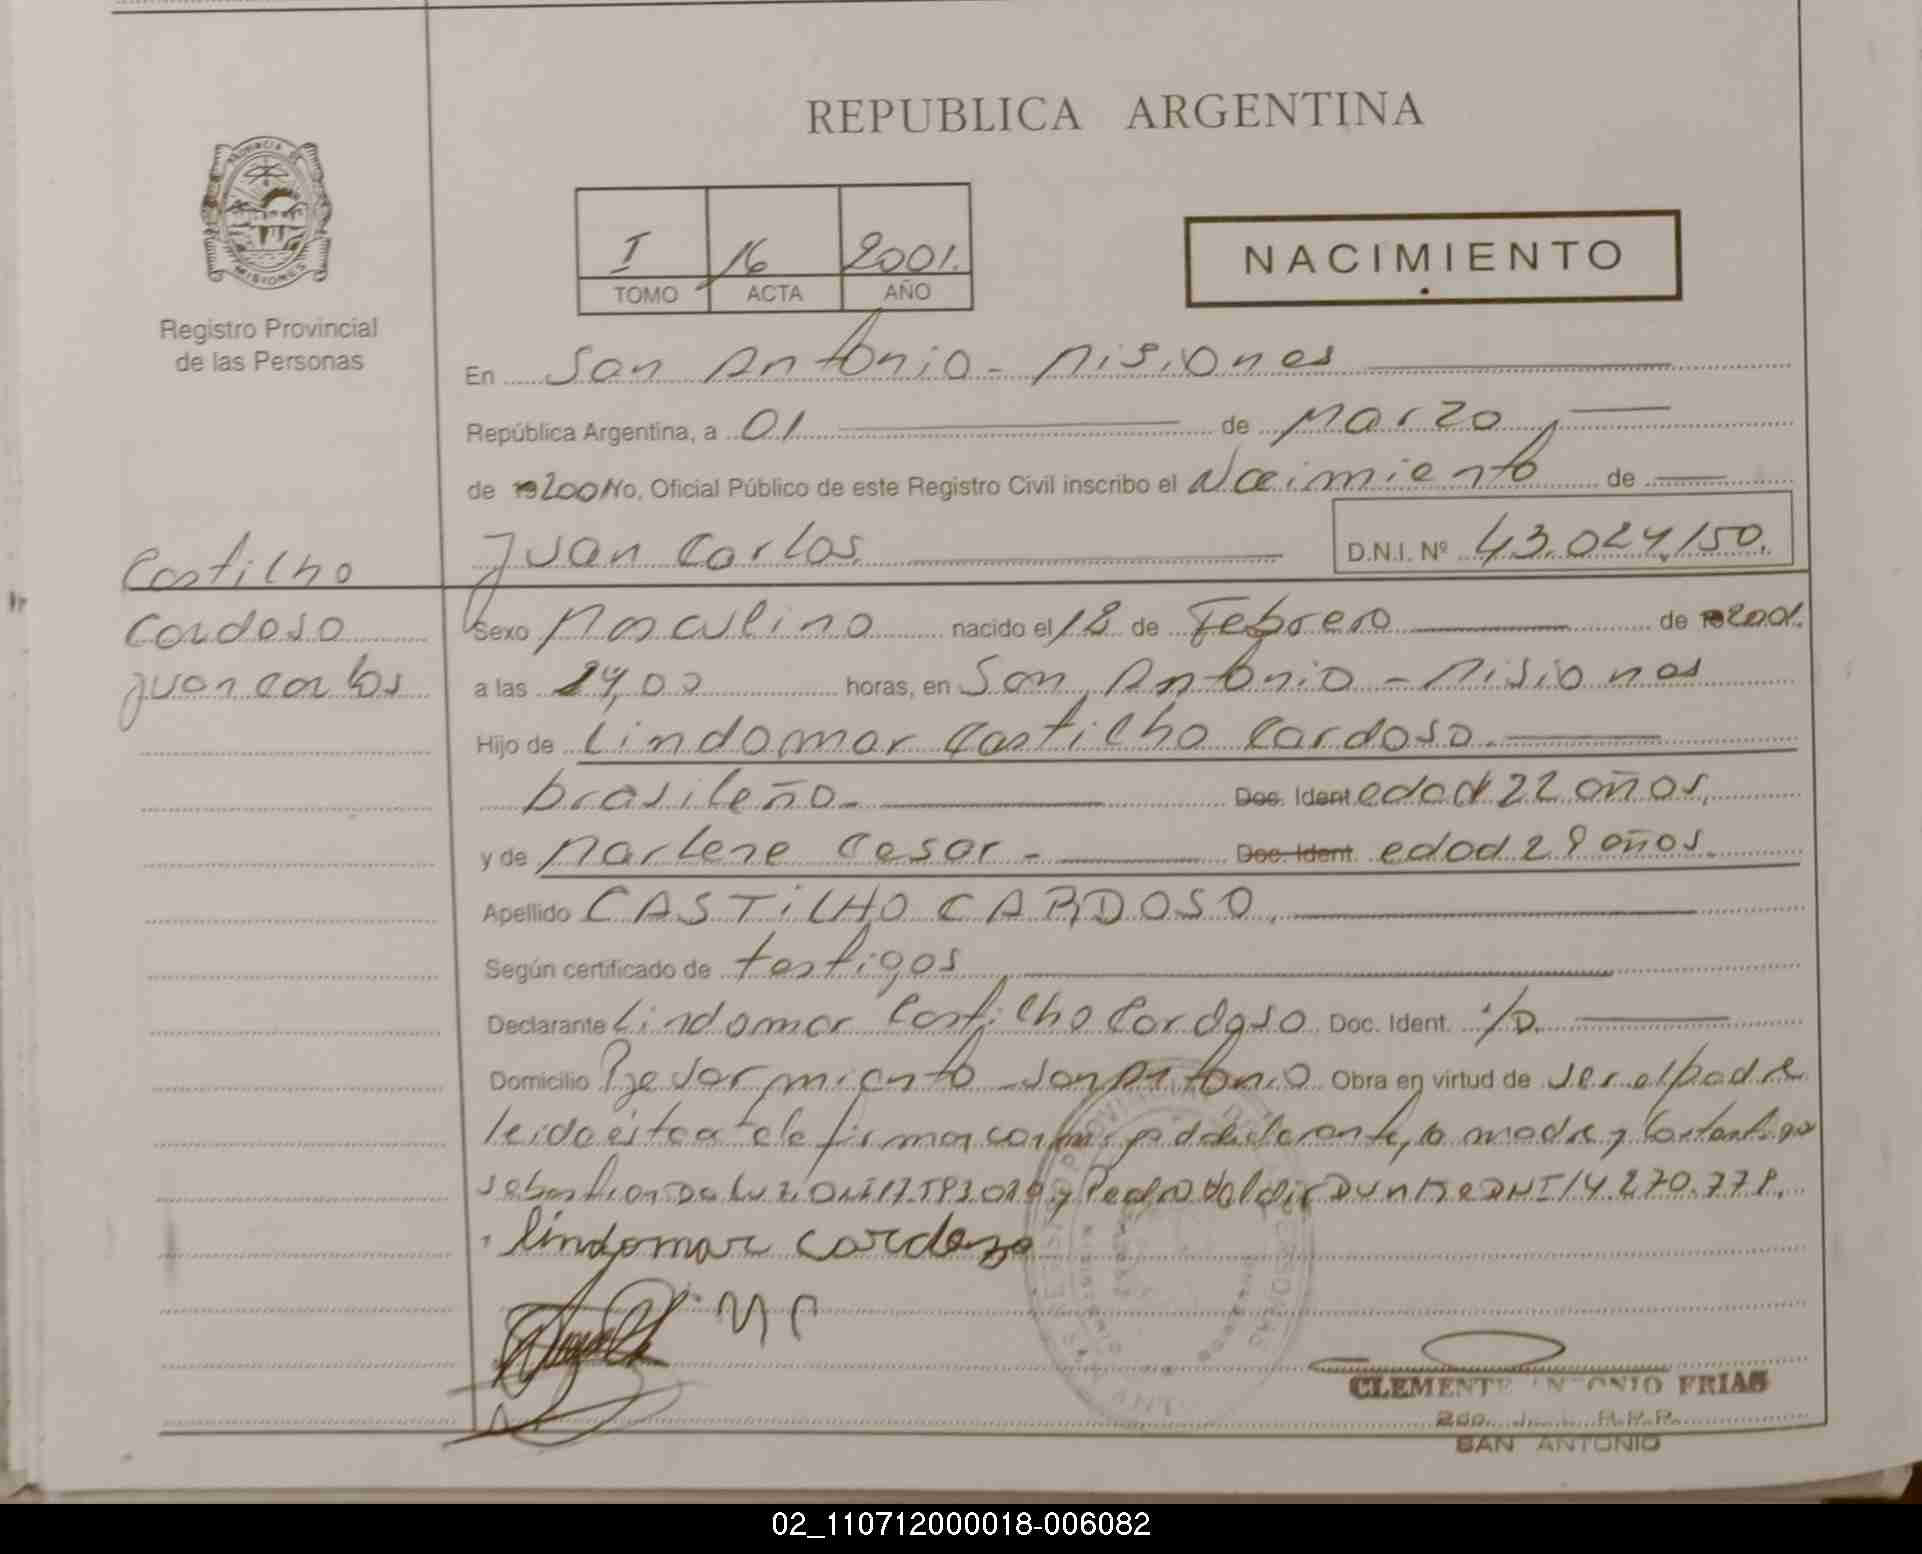 REPUBLICA ARGENTINA
PROVINCIA DE
MISIONES
Registro Provincial
de las Personas
I 16 2001.
TOMO ACTA AÑO
NACIMIENTO
En San Antonio - Misiones
República Argentina, a 01 de Marzo
de 2001 Yo, Oficial Público de este Registro Civil inscribo el Nacimiento de
Juan Carlos D.N.I. Nº 43.024.150.
Castilho
Cardoso
Juan Carlos
Sexo Masculino nacido el 18 de Febrero de 2001.
a las 24,00 horas, en San Antonio - Misiones
Hijo de Lindomar Castilho Cardoso.
brasileño - Doc. Ident edad 22 años,
y de Marlene Cesar - Doc. Ident. edad 28 años.
Apellido CASTILHO CARDOSO.
Según certificado de testigos
Declarante Lindomar Castilho Cardoso Doc. Ident.
Domicilio San Antonio Obra en virtud de ser el padre
leido esta acta la firman la madre y los testigos
Sebastian Da Luz y Pedro Valdir DNI 14.270.778.
Lindomar cardozo
M C
CLEMENTE ANTONIO FRIAS
SAN ANTONIO
02_110712000018-006082